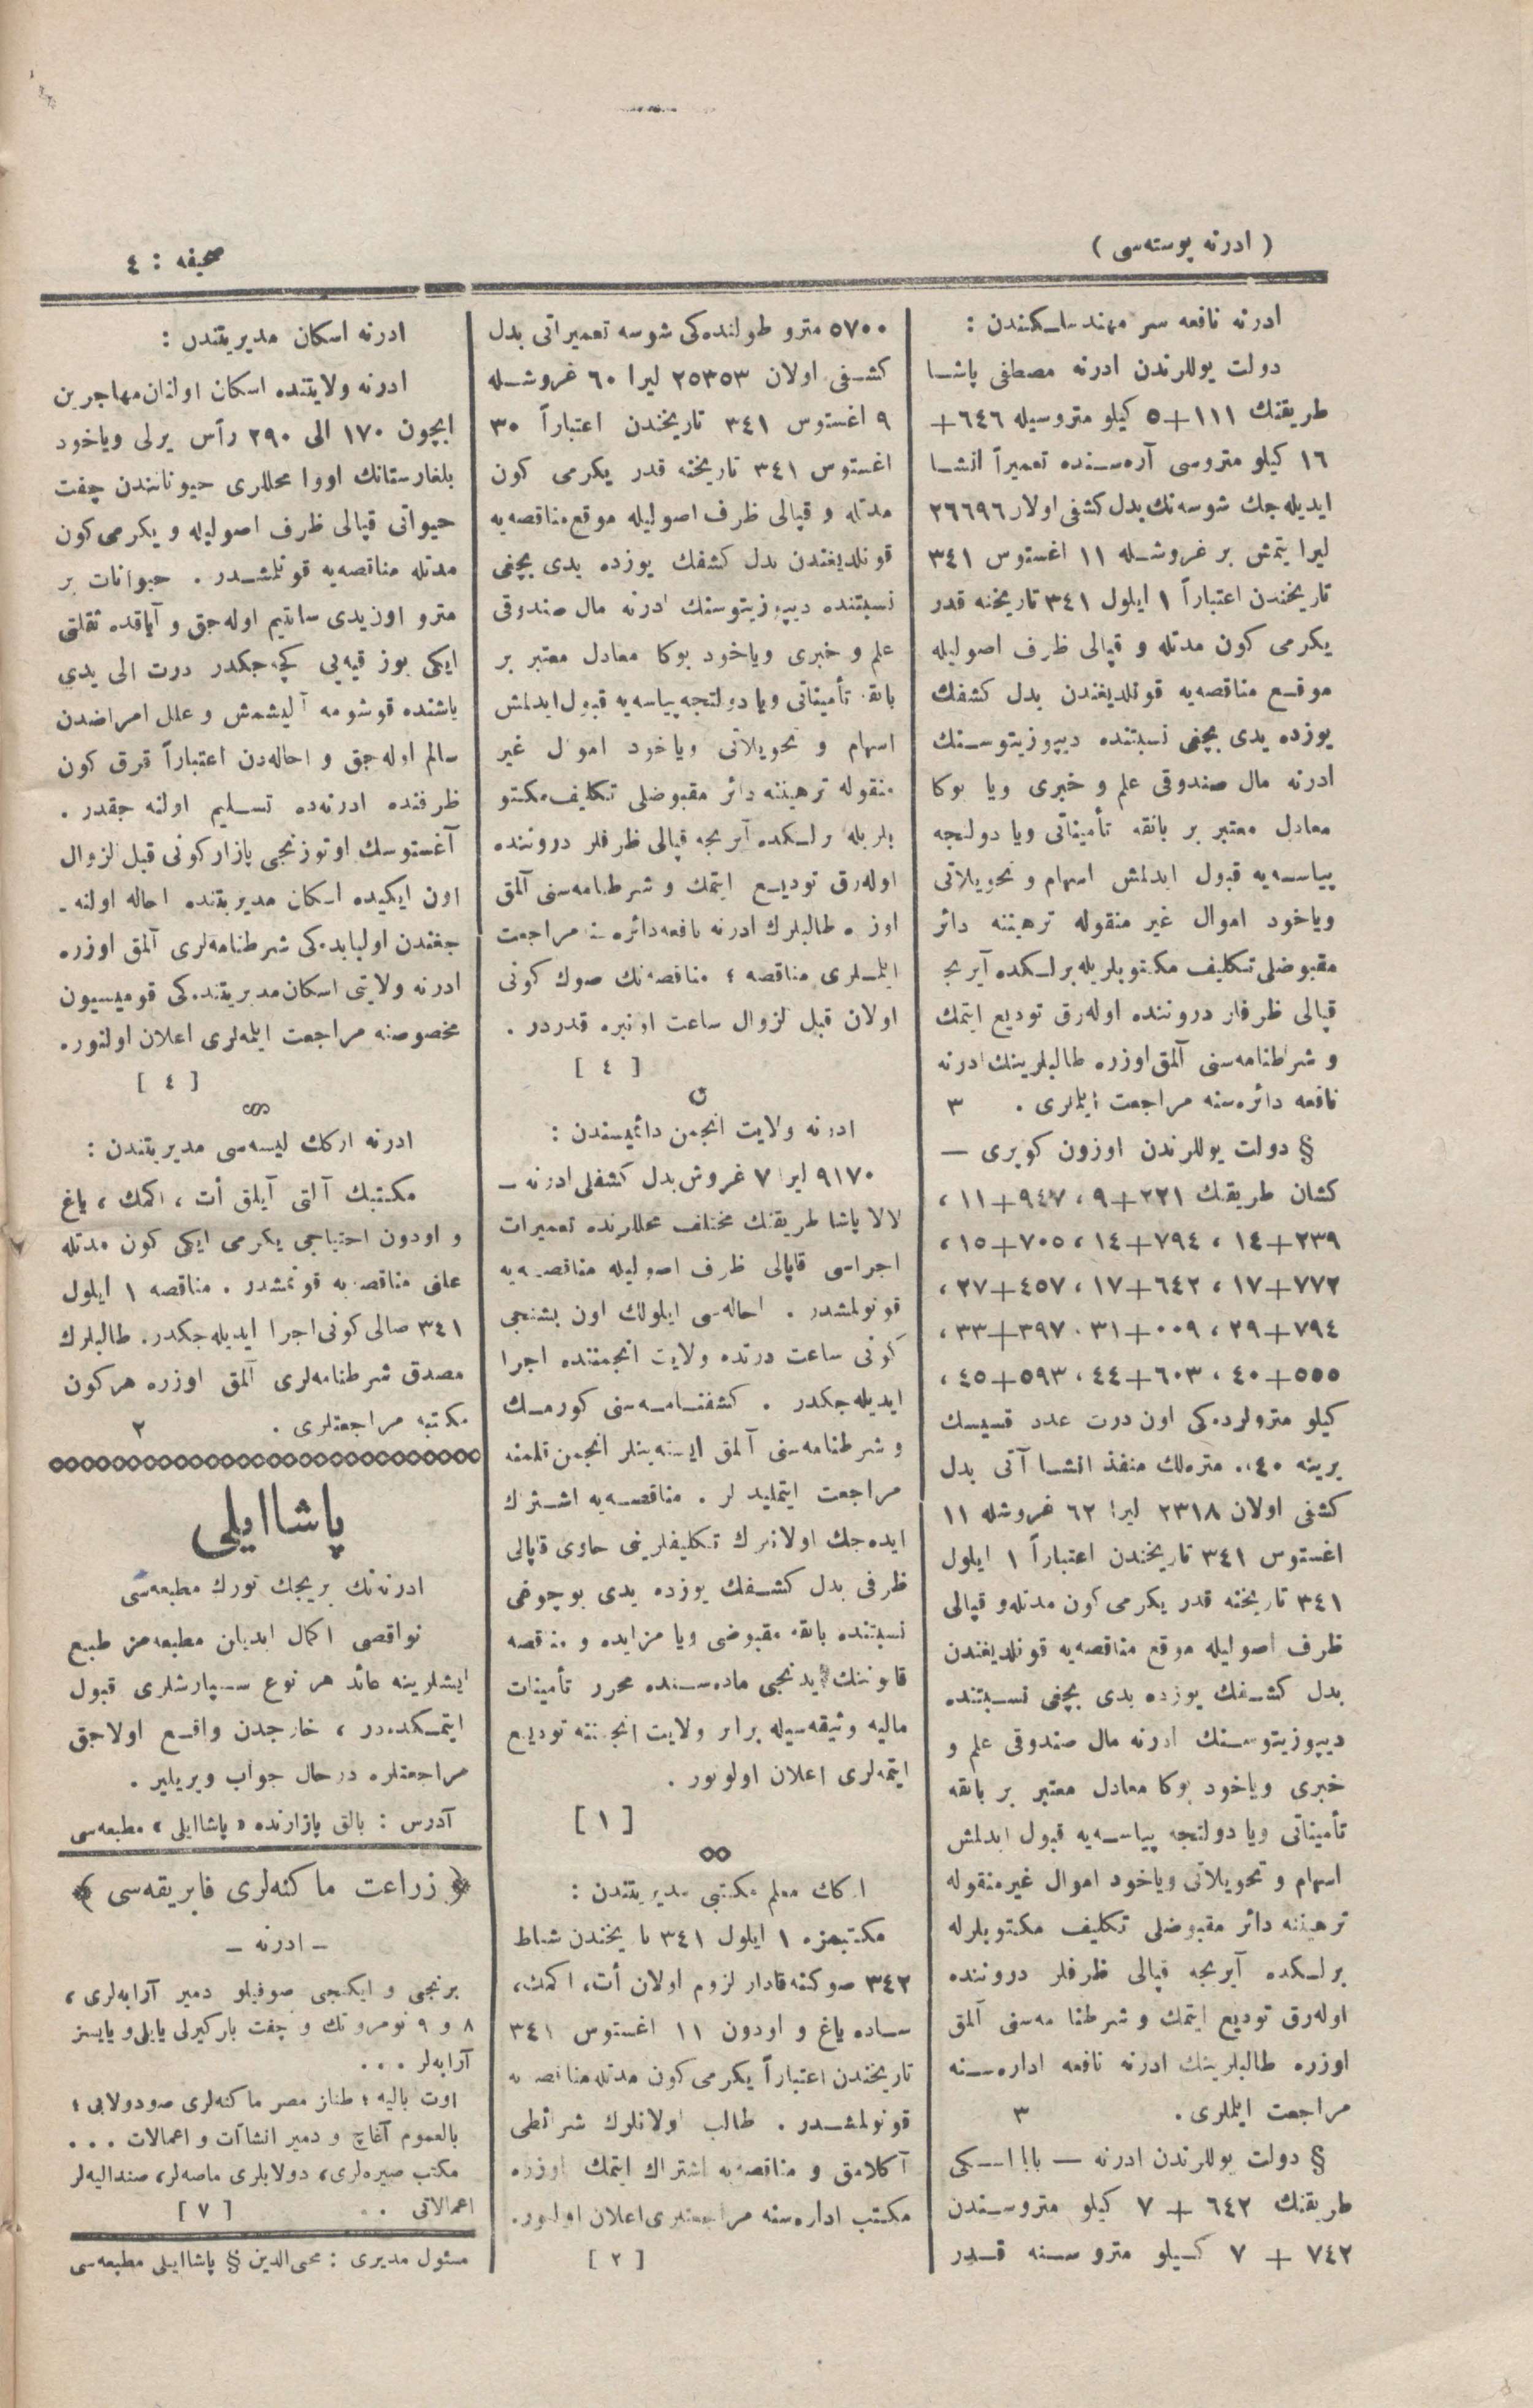 ( ادرنه پوسته‌سی )
صحیفه : ٤
ادرنه نافعه سر مهندسلکندن :
دولت یوللرندن ادرنه مصطفی پاشا
طریقنك ١١١+٥ کیلو متروسیله ٦٤٦+
١٦ کیلو متروسی آره‌سنده تعمیراً انشا
ایدیله‌جك شوسه‌نك بدل کشفی اولان ٢٦٦٩٦
لیرا یتمش بر غروشله ١١ اغستوس ٣٤١
تاریخندن اعتباراً ١ ایلول ٣٤١ تاریخنه قدر
یکرمی کون مدتله و قپالی ظرف اصولیله
موقع مناقصه‌یه قونلدیغندن بدل کشفك
یوزده یدی بچغی نسبتنده دیپوزیتوسنك
ادرنه مال صندوقی علم و خبری ویا بوکا
معادل معتبر بر بانقه تأمیناتی ویا دولتجه
پیاسه‌یه قبول ایدلمش اسهام و تحویلاتی
ویاخود اموال غیر منقوله ترهیننه دائر
مقبوضلی تکلیف مکتوبلریله برلکده آیریجه
قپالی ظرفلر دروننده اوله‌رق تودیع ایتمك
و شرطنامه‌سنی آلمق اوزره طالبلرینك ادرنه
نافعه دائره‌سنه مراجعت ایلملری . ٣
§ دولت یوللرندن اوزون کوپری —
کشان طریقنك ٢٢١+٩ ، ٩٤٧+١١ ،
٢٣٩+١٤ ، ٧٩٤+١٤ ، ٧٠٥+١٥ ،
٧٧٢+١٧ ، ٦٤٢+١٧ ، ٤٥٧+٢٧ ،
٧٩٤+٢٩ ، ٠٠٩+٣١ ، ٣٩٧+٣٣ ،
٥٥٥+٤٠ ، ٦٠٣+٤٤ ، ٥٩٣+٤٥ ،
کیلو مترولرده‌کی اون درت عدد قسیسك
یرینه ٠،٤٠ متره‌لك منفذ انشا آتی بدل
کشفی اولان ٢٣١٨ لیرا ٦٢ غروشله ١١
اغستوس ٣٤١ تاریخندن اعتباراً ١ ایلول
٣٤١ تاریخنه قدر یکرمی کون مدتله و قپالی
ظرف اصولیله موقع مناقصه‌یه قونلدیغندن
بدل کشفك یوزده یدی بچغی نسبتنده
دیپوزیتوسنك ادرنه مال صندوقی علم و
خبری ویاخود بوکا معادل معتبر بر بانقه
تأمیناتی ویا دولتجه پیاسه‌یه قبول ایدلمش
اسهام و تحویلاتی ویاخود اموال غیرمنقوله
ترهیننه دائر مقبوضلی تکلیف مکتوبلرله
برلکده آیریجه قپالی ظرفلر دروننده
اوله‌رق تودیع ایتمك و شرطنامه‌سنی آلمق
اوزره طالبلرینك ادرنه نافعه اداره‌سنه
مراجعت ایلملری . ٣
§ دولت یوللرندن ادرنه — بابا اسکی
طریقنك ٦٤٢ + ٧ کیلو متروسندن
٧٤٢ + ٧ کیلو متروسنه قدر
٥٧٠٠ مترو طولنده‌کی شوسه تعمیراتی بدل
کشفی اولان ٢٥٣٥٣ لیرا ٦٠ غروشله
٩ اغستوس ٣٤١ تاریخندن اعتباراً ٣٠
اغستوس ٣٤١ تاریخنه قدر یکرمی کون
مدتله و قپالی ظرف اصولیله موقع مناقصه‌یه
قونلدیغندن بدل کشفك یوزده یدی بچغی
نسبتنده دیپوزیتوسنك ادرنه مال صندوقی
علم و خبری ویاخود بوکا معادل معتبر بر
بانقه تأمیناتی ویا دولتجه پیاسه‌یه قبول ایدلمش
اسهام و تحویلاتی ویاخود اموال غیر
منقوله ترهیننه دائر مقبوضلی تکلیف مکتو
بلریله برلکده آیریجه قپالی ظرفلر دروننده
اوله‌رق تودیع ایتمك و شرطنامه‌سنی آلمق
اوزره طالبلرك ادرنه نافعه دائره‌سنه مراجعت
ایلملری مناقصه ؛ مناقصه‌نك صوك کونی
اولان قبل الزوال ساعت اونبره قدردر .
[ ٤ ]
ادرنه ولایت انجمن دائمیسندن :
٩١٧٠ لیرا ٧ غروش بدل کشفلی ادرنه —
لالا پاشا طریقنك مختلف محللرنده تعمیرات
اجراسی قاپالی ظرف اصولیله مناقصه‌یه
قونولمشدر . احاله‌سی ایلولك اون بشنجی
کونی ساعت درتده ولایت انجمننده اجرا
ایدیله‌جکدر . کشفنامه‌سنی کورمك
و شرطنامه‌سنی آلمق ایسته‌ینلر انجمن قلمنه
مراجعت ایتملیدرلر . مناقصه‌یه اشتراك
ایده‌جك اولانلرك تکلیفلرینی حاوی قاپالی
ظرفی بدل کشفك یوزده یدی بوچوغی
نسبتنده بانقه مقبوضی ویا مزایده و مناقصه
قانوننك یدنجی ماده‌سنده محرر تأمینات
مالیه وثیقه‌سیله برابر ولایت انجمننه تودیع
ایتمه‌لری اعلان اولونور .
[ ١ ]
ارکك معلم مکتبی مدیریتندن :
مکتبمزه ١ ایلول ٣٤١ تاریخندن شباط
٣٤٢ صوکنه قادار لزوم اولان أت، اکمك،
ساده یاغ و اودون ١١ اغستوس ٣٤١
تاریخندن اعتباراً یکرمی کون مدتله مناقصه‌یه
قونولمشدر . طالب اولانلرك شرائطی
آکلامق و مناقصه‌یه اشتراك ایتمك اوزره
مکتب اداره‌سنه مراجعتلری اعلان اولنور.
[ ٢ ]
ادرنه اسکان مدیریتندن :
ادرنه ولایتنده اسکان اولنان مهاجرین
ایچون ١٧٠ الی ٢٩٠ رأس یرلی ویاخود
بلغارستانك اووا محللری حیوناتندن چفت
حیواتی قپالی ظرف اصولیله و یکرمی کون
مدتله مناقصه‌یه قونلمشدر . حیوانات بر
مترو اون‌یدی سانتیم اوله‌جق و آیاقده ثقلتی
ایکی یوز قیه‌یی کچه‌جکدر درت الی یدی
یاشنده قوشومه آلیشمش و علل امراضدن
سالم اوله‌جق و احاله‌دن اعتباراً قرق کون
ظرفنده ادرنه‌ده تسلیم اولنه جقدر .
آغستوسك اوتوزنجی پازار کونی قبل الزوال
اون ایکیده اسکان مدیریتنده احاله اولنه -
جغندن اولبابده‌کی شرطنامه‌لری آلمق اوزره
ادرنه ولایتی اسکان مدیریتنده‌کی قومیسیون
مخصوصنه مراجعت ایلمه‌لری اعلان اولنور.
[ ٤ ]
ادرنه ارکك لیسه‌سی مدیریتندن :
مکتبك آلتی آیلق أت ، اکمك ، یاغ
و اودون احتیاجی یکرمی ایکی کون مدتله
علنی مناقصه‌یه قونمشدر . مناقصه ١ ایلول
٣٤١ صالی کونی اجرا ایدیله‌جکدر. طالبلرك
مصدق شرطنامه‌لری آلمق اوزره هرکون
مکتبه مراجعتلری . ٢
پاشاایلی
ادرنه‌نك بریجك تورك مطبعه‌سی
نواقصی اکمال ایدیان مطبعه‌مز طبع
ایشلرینه عائد هر نوع سپارشلری قبول
ایتمکده‌در ، خارجدن واقع اولاجق
مراجعتلره درحال جواب ویریلیر .
آدرس : بالق پازارنده «پاشاایلی» مطبعه‌سی
﴿ زراعت ماکنه‌لری فابریقه‌سی ﴾
- ادرنه -
برنجی و ایکنجی صوفیلو دمیر آرابه‌لری ،
٨ و ٩ نومرو تك و چفت بارکیرلی یایلی و یایسز
آرابه‌لر . . .
اوت بالیه ؛ طناز مصر ماکنه‌لری صودولابی ؛
بالعموم آغاچ و دمیر انشاآت و اعمالات . . .
مکتب صیره‌لری، دولابلری ماصه‌لر، صندالیه‌لر
اعمالاتی . . [ ٧ ]
مسئول مدیری : محی‌الدین § پاشاایلی مطبعه‌سی